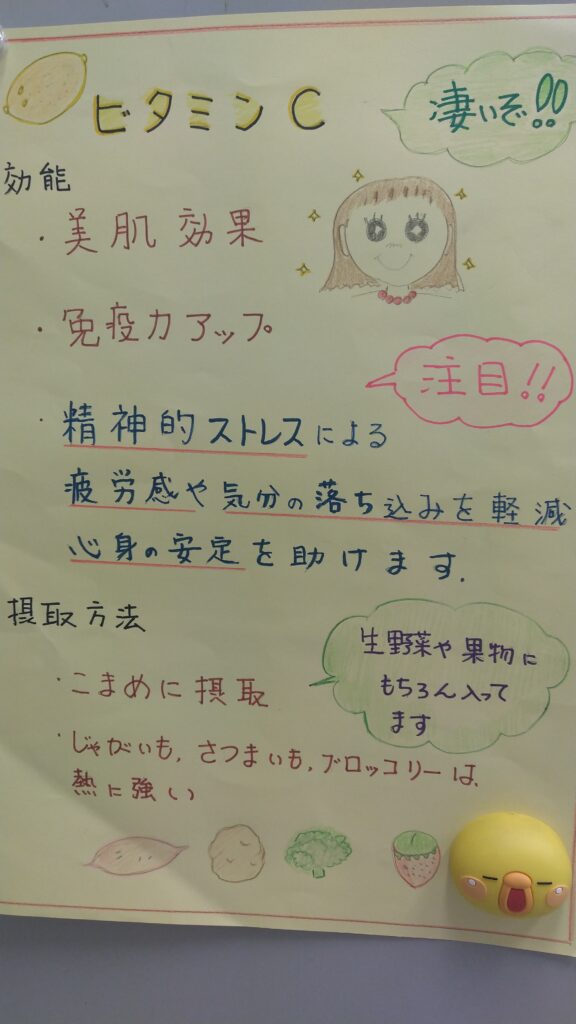 ビタミンC
凄いぞ!!
効能
・美肌効果
・免疫力アップ
注目!!
・精神的ストレスによる
疲労感や気分の落ち込みを軽減
心身の安定を助けます.
摂取方法
生野菜や果物に
もちろん入って
ます
・こまめに摂取
・じゃがいも,さつまいも,ブロッコリーは、
熱に強い